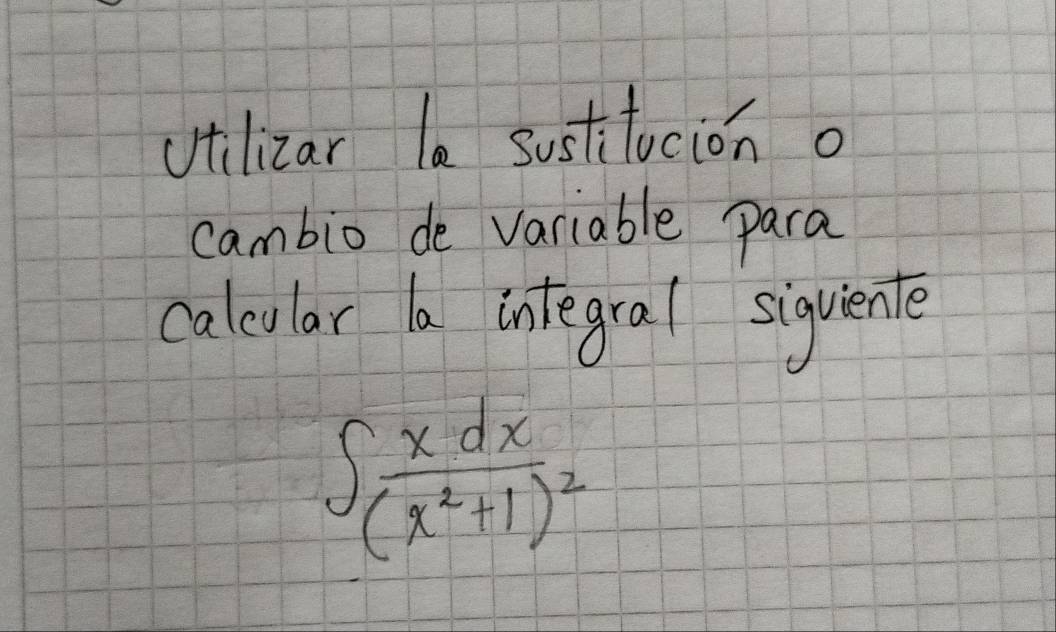 Utilizar la sustitución o
cambio de variable para
calcular la integral siguiente
∫ x dx / (x² + 1)²